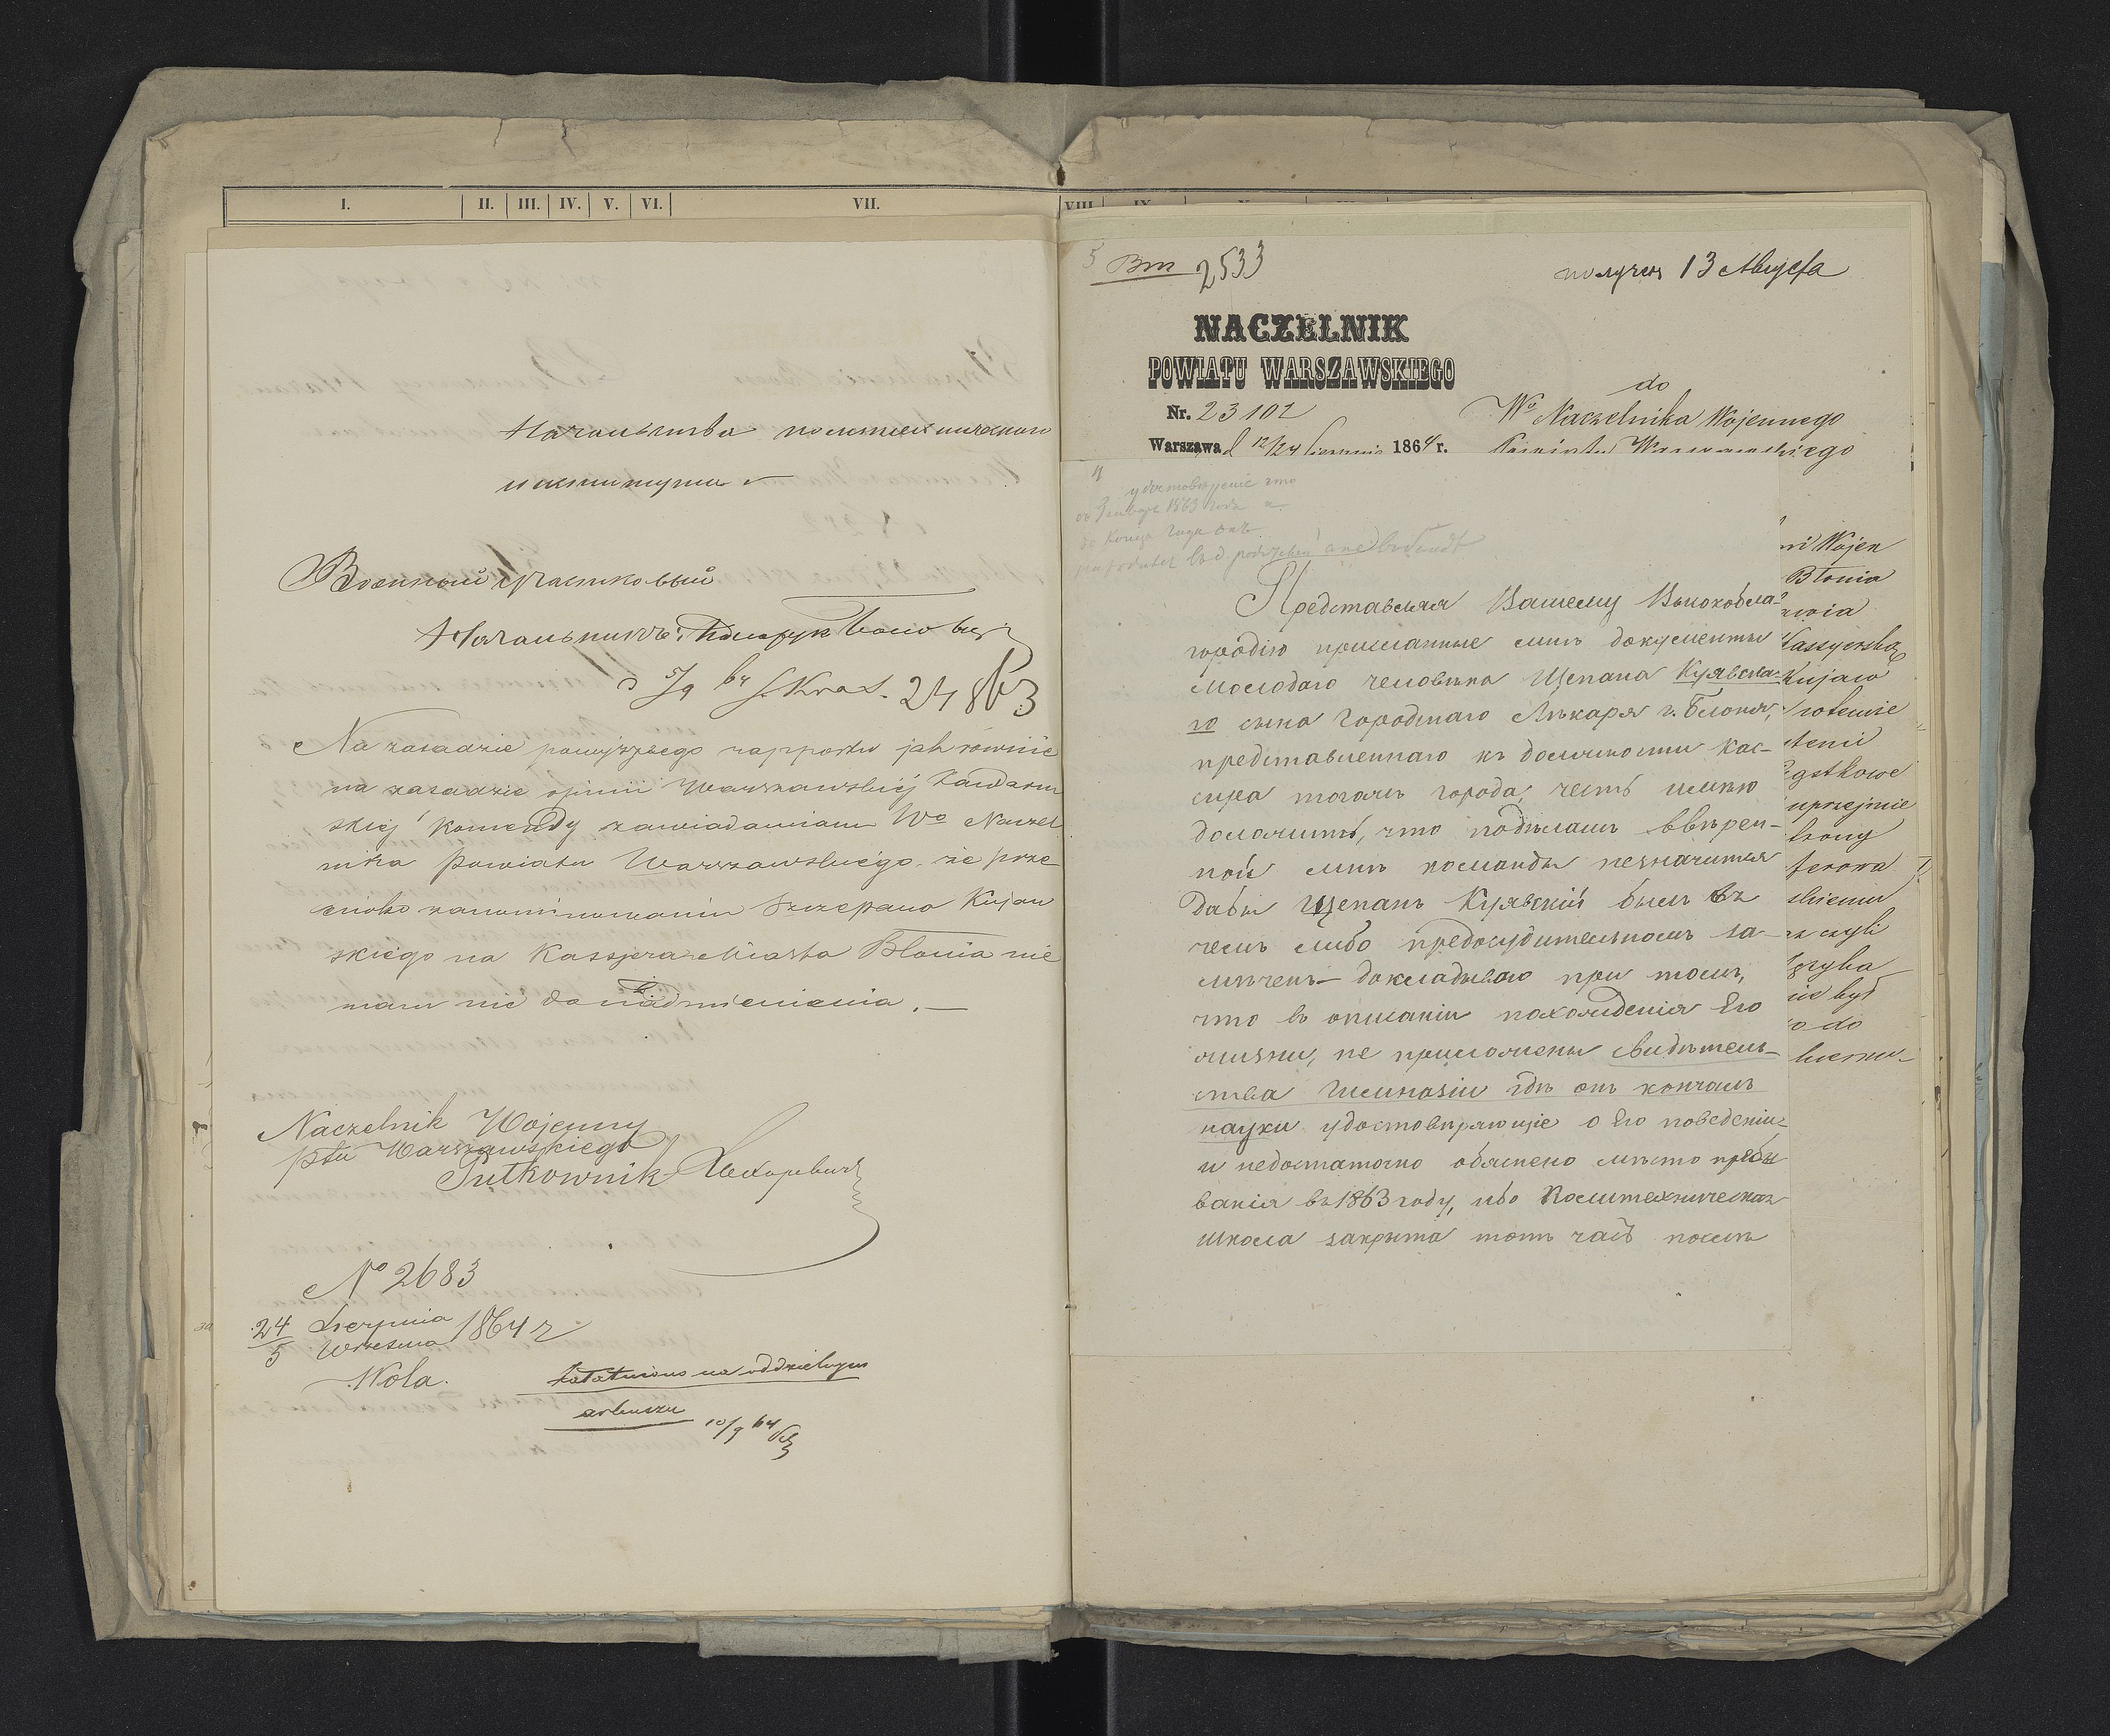 I. II. III. IV. V. VI. VII.
Начальства политехническаго
института
Военный Участковый
Начальникъ: Поморук
Na zasadzie powyższego rapportu jak równie
na zasadzie opinii Warszawskiej Żandarm
skiej Komendy zawiadamiam Wo Naczel
nika Powiatu Warszawskiego, że prze
ciwko zanominowaniu Szczepana Kujaw
skiego na Kassjera Miasta Błonia nie
mam nic do nadmienienia.—
Naczelnik Wojenny
Ptu Warszawskiego
Pułkownik
No 2683
24/5 Sierpnia/Września 1864 r
Wola.
Załatwiono na oddzielnym
arkuszu 10/9 64
VIII. IX.
5 Вт 2533
получен 13 Августа
NACZELNIK
POWIATU WARSZAWSKIEGO
do
Nr. 23102
Wo Naczelnika Wojennego
Warszawa d 12/24 Sierpnia 1864 r.
Powiatu Warszawskiego
удостоверение что
съ Января 1863 года и
до конца года онъ
Представляя Вашему Высокобла-
городію присланные мнѣ документы
молодаго человѣка Щепана Куявска-
го сына городнаго Лѣкаря г. Блоня,
представленнаго къ должности Кас-
сира тогожъ города, честь имѣю
доложить, что по дѣламъ ввѣрен-
ной мнѣ команды незначится
дабы Щепанъ Куявскій былъ въ
чемъ либо предосудительномъ за-
мѣченъ— докладываю при томъ,
что въ описаніи похожденія Его
жизни, не приложены свидѣтель-
ства Гимназіи гдѣ онъ кончалъ
науки удостовѣряющіе о Его поведеніи
и недостаточно обяснено мѣсто пребы
ванія въ 1863 году, ибо Политехническая
школа закрыта тотъ часъ послѣ
ni Wojen
Błonia
awia
Kassyerska
Kujaw
uprzejmie
ferowa
skiemu
czyli
nie był
o do